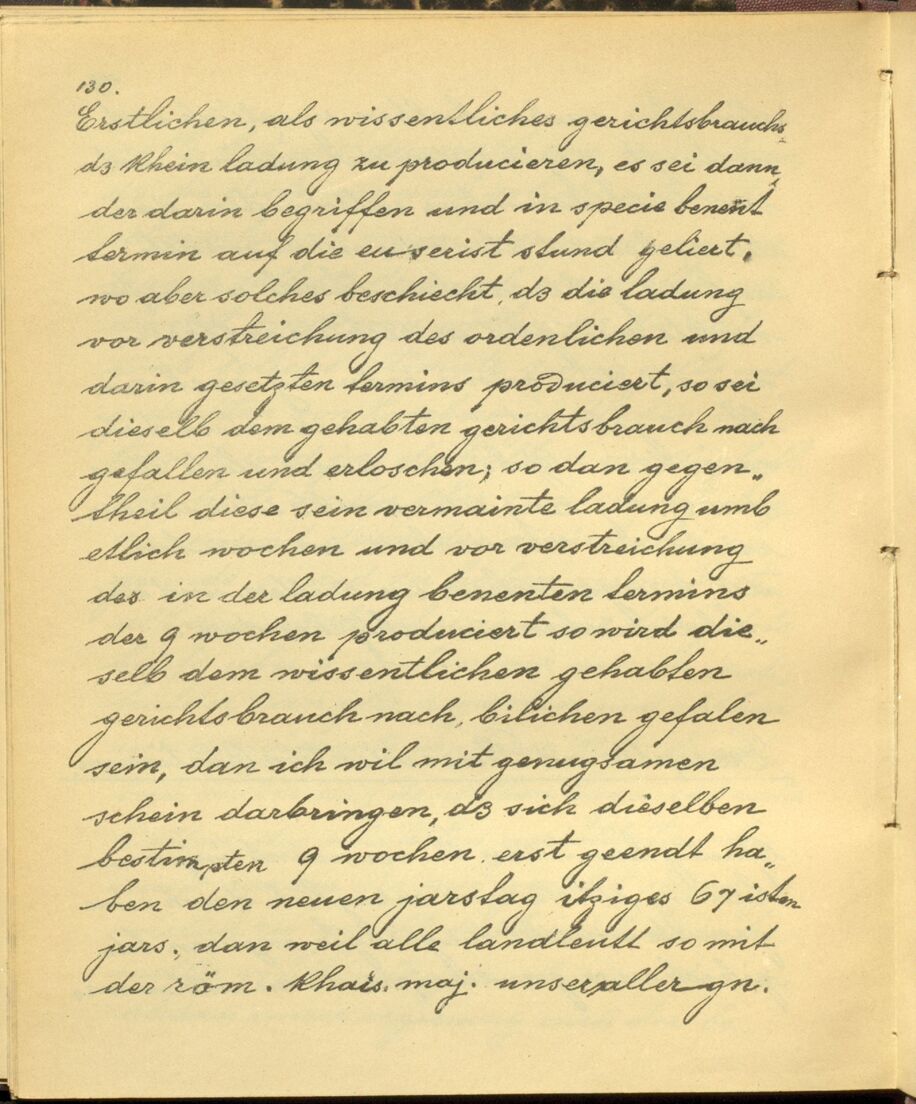 130.
Erstlichen, als wissentliches gerichtsbrauchs
dz khein ladung zu producieren, es sei dann,
der darin begriffen und in specie benent
termin auf die euserist stund geliert,
wo aber solches beschiecht, dz die ladung
vor verstreichung des ordenlichen und
darin gesetzten termins produciert, so sei
dieselb dem gehabten gerichtsbrauch nach
gefallen und erloschen; so dan gegen„
theil diese sein vermainte ladung umb
etlich wochen und vor verstreichung
des in der ladung benenten termins
der 9 wochen produciert so wird die„
selb dem wissentlichen gehabten
gerichtsbrauch nach, bilichen gefalen
sein, dan ich wil mit genugsamen
schein darbringen, dz sich dieselben
bestimpten 9 wochen erst geendt ha„
ben den neuen jarstag itziges 67 isten
jars., dan weil alle landleutt so mit
der röm. khais. maj. unser aller gn.